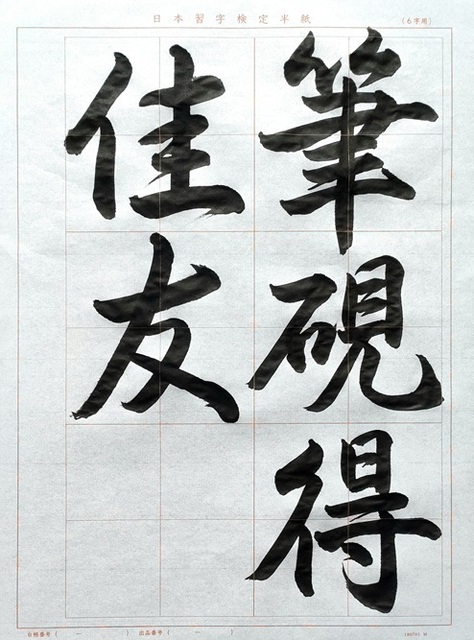 日本習字検定半紙
(6字用)
筆硯得
佳友
台帳番号 ( ー )
出品番号 ( ー )